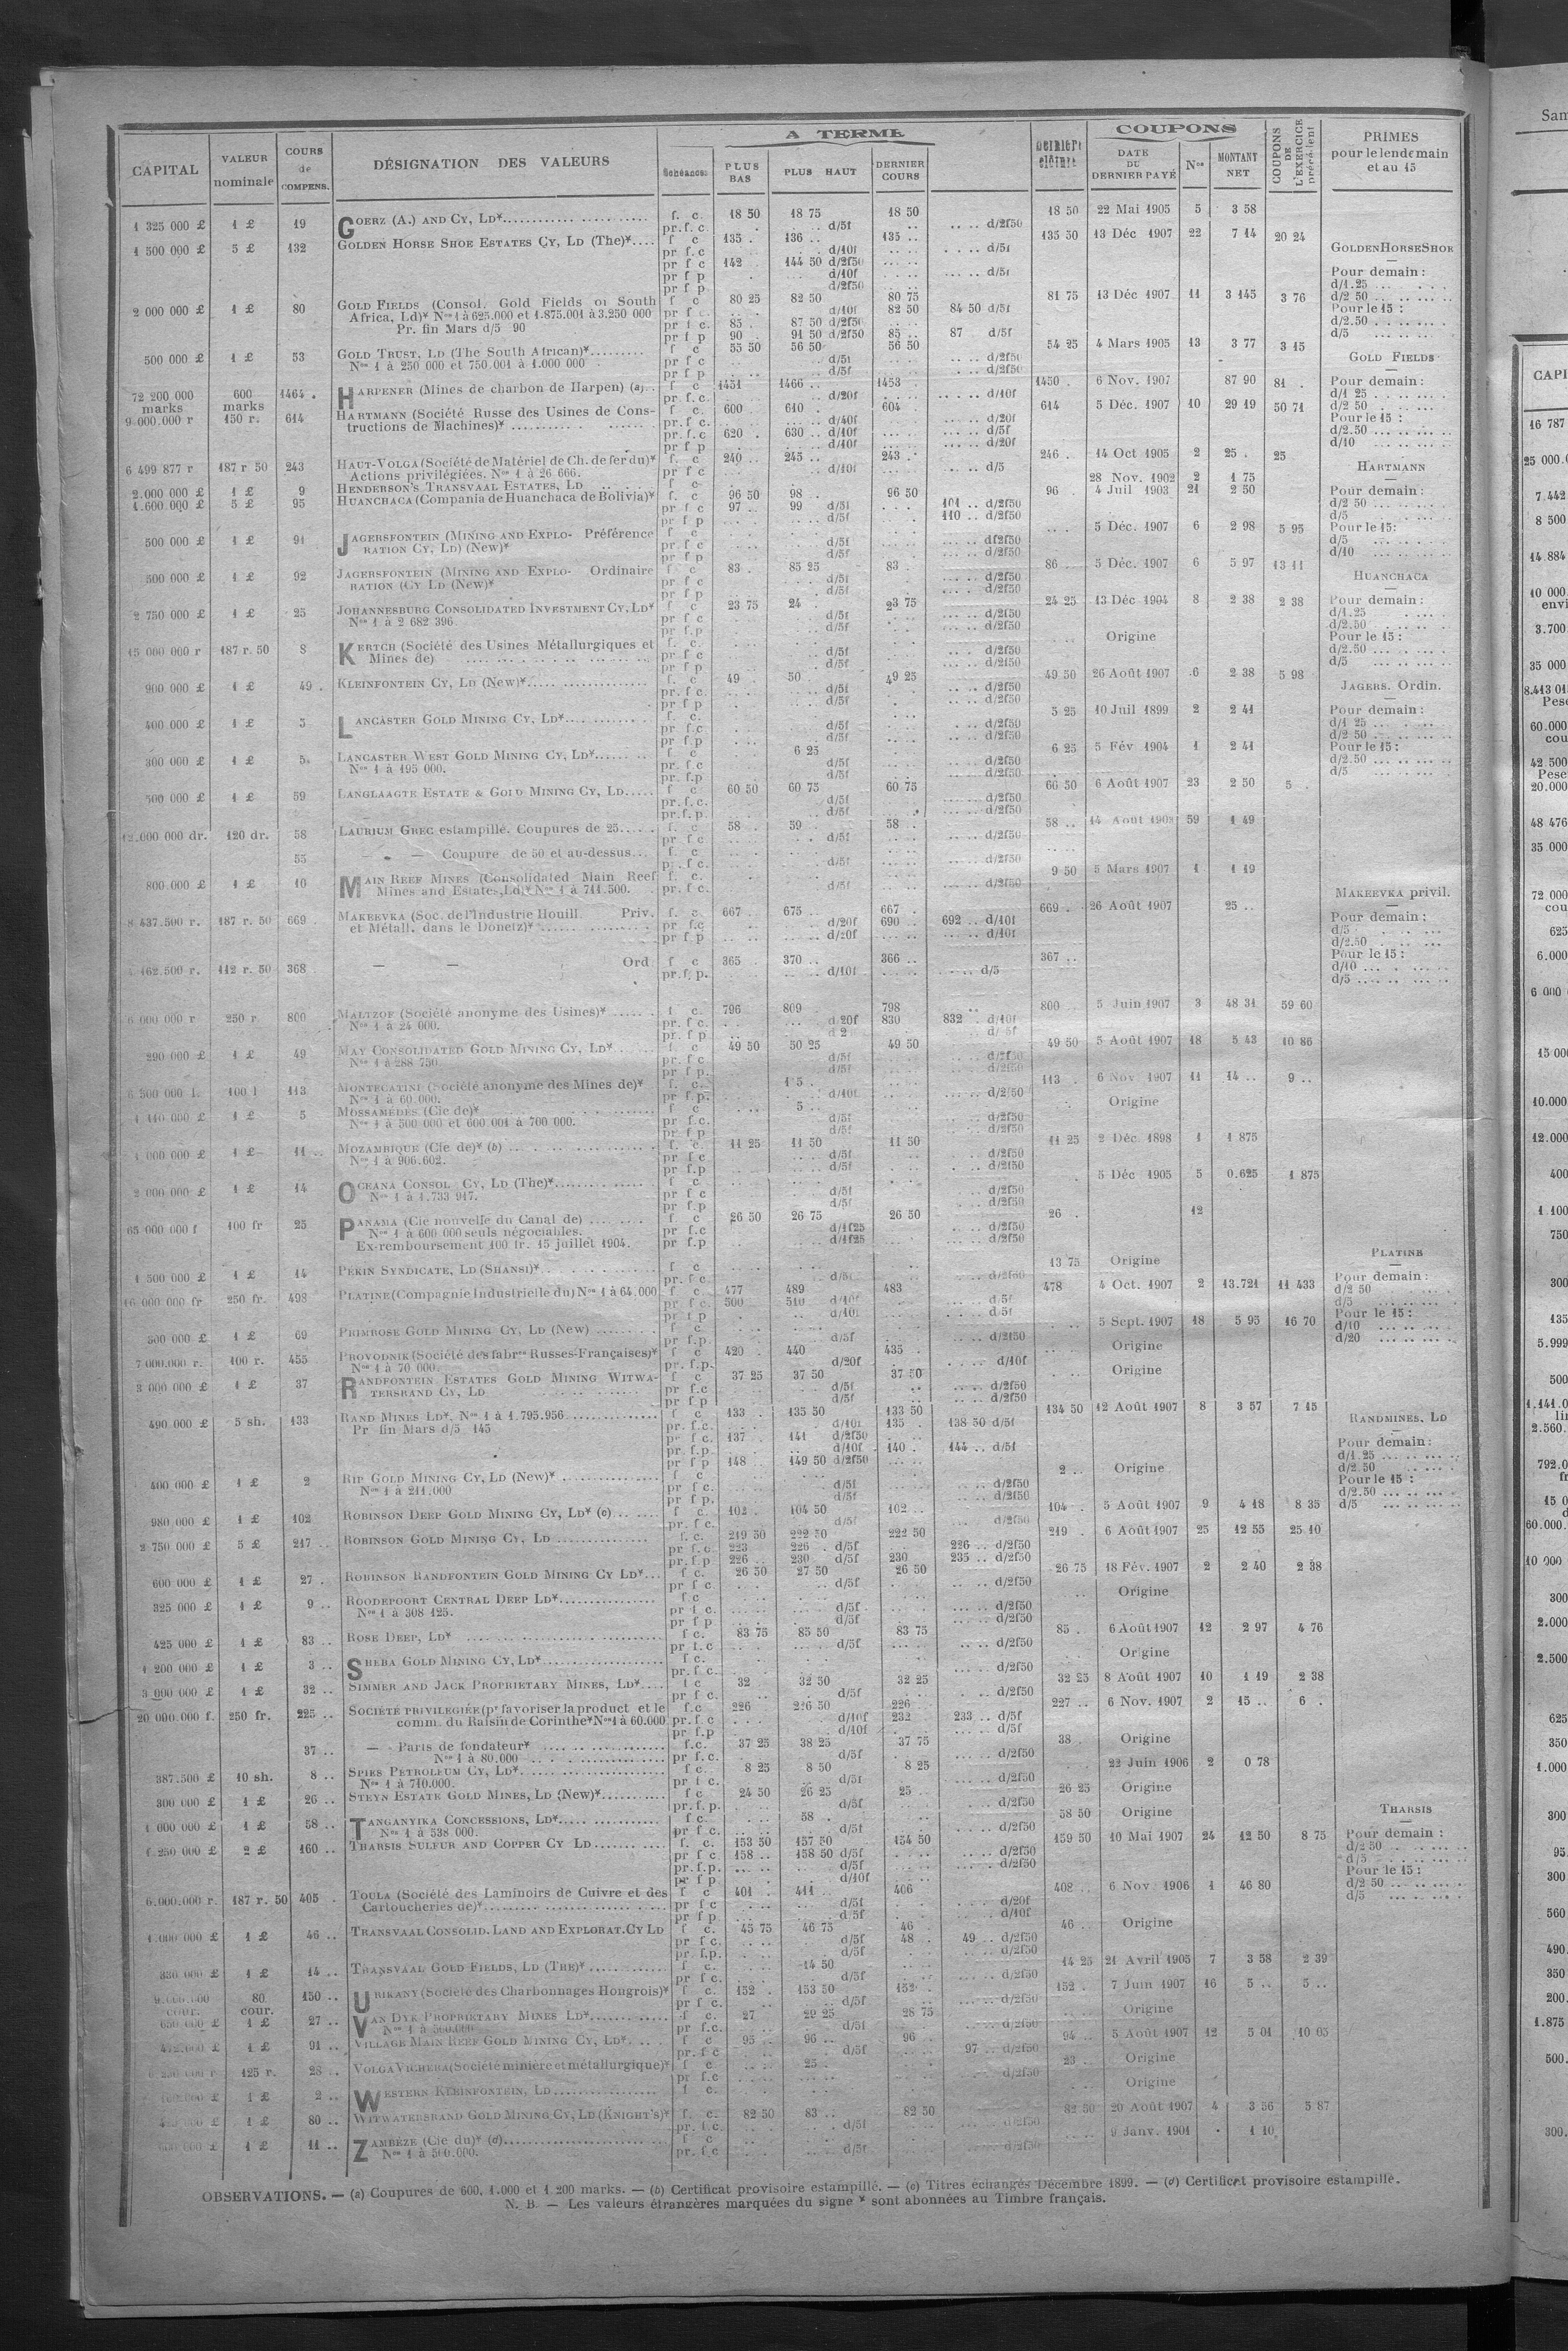 A TERME
COUPONS
CAPITAL VALEUR nominale COURS de COMPENS. DÉSIGNATION DES VALEURS Échéances PLUS BAS PLUS HAUT DERNIER COURS Dernière clôture DATE DU DERNIER PAYÉ Nos MONTANT NET COUPONS DE L'EXERCICE précédent PRIMES pour le lendemain et au 15
1 325 000 £ 1 £ 19 GOERZ (A.) AND CY, LD* f. c. 18 50 18 75 18 50 18 50 22 Mai 1905 5 3 58
pr. f. c. d/5f d/2f50
1 500 000 £ 5 £ 132 GOLDEN HORSE SHOE ESTATES CY, LD (The)* f c 135 . 136 .. 135 .. 135 50 13 Déc 1907 22 7 14 20 24
pr f. c d/10f d/5f
pr f c 142 144 50 d/2f50
pr f p d/10f d/5f
pr f p d/2f50
GOLDEN HORSE SHOE
Pour demain :
d/1.25
d/2 50
Pour le 15 :
d/2.50
d/5
2 000 000 £ 1 £ 80 GOLD FIELDS (Consol. Gold Fields of South f c 80 25 82 50 80 75 81 75 13 Déc 1907 11 3 145 3 76
Africa, Ld)* Nos 1 à 625.000 et 1.875.001 à 3.250 000 pr f c. d/10f 82 50 84 50 d/5f
Pr. fin Mars d/5 90 pr f c. 85 . 87 50 d/2f50
pr f p 90 91 50 d/2f50 85 .. 87 d/5f
500 000 £ 1 £ 53 GOLD TRUST, LD (The South African)* f c 55 50 56 50 56 50 54 25 4 Mars 1905 13 3 77 3 15
Nos 1 à 250 000 et 750.001 à 1.000 000 pr f c d/5f d/2f50
pr f p d/5f d/2f50
GOLD FIELDS
Pour demain :
d/1 25
d/2 50
Pour le 15 :
d/2.50
d/10
72 200 000 marks 600 marks 1464 . HARPENER (Mines de charbon de Harpen) (a) f c 1451 1466 .. 1453 . 1450 . 6 Nov. 1907 87 90 81 .
pr. f. c. d/20f d/10f
9.000.000 r 150 r. 614 HARTMANN (Société Russe des Usines de Cons- f c. 600 610 . 604 614 5 Déc. 1907 10 29 19 50 71
tructions de Machines)* pr. f. c. d/40f d/20f
pr. f. c 620 . 630 .. d/10f d/5f
pr f p d/10f d/20f
6 499 877 r 187 r 50 243 HAUT-VOLGA (Société de Matériel de Ch. de fer du)* f. c 240 .. 245 .. 243 .. 246 . 14 Oct 1905 2 25 . 25
Actions privilégiées. Nos 1 à 26 666. pr f c d/10f d/5
2.000 000 £ 1 £ 9 HENDERSON'S TRANSVAAL ESTATES, LD f c 28 Nov. 1902 2 1 75
1.600.000 £ 5 £ 95 HUANCHACA (Compania de Huanchaca de Bolivia)* f. c 96 50 98 .. 96 50 96 . 4 Juil 1903 21 2 50
pr f c 97 .. 99 d/5f 101 .. d/2f50
pr f p d/5f 110 .. d/2f50
HARTMANN
Pour demain :
d/2 50
d/5
Pour le 15:
d/5
d/10
500 000 £ 1 £ 91 JAGERSFONTEIN (MINING AND EXPLO- Préférence f c 5 Déc. 1907 6 2 98 5 95
RATION CY, LD) (New)* pr. f c d/5f d/2f50
pr f p d/5f d/2f50
500 000 £ 1 £ 92 JAGERSFONTEIN (MINING AND EXPLO- Ordinaire f c 83 . 85 25 83 . 86 5 Déc. 1907 6 5 97 13 11
RATION (CY LD (New)* pr f c d/5f d/2f50
pr f p d/5f d/2f50
2 750 000 £ 1 £ 25 JOHANNESBURG CONSOLIDATED INVESTMENT CY, LD* f c 23 75 24 . 23 75 24 25 13 Déc 1904 8 2 38 2 38
Nos 1 à 2 682 396 pr f c d/5f d/2f50
pr f.p d/5f d/2f50
HUANCHACA
Pour demain :
d/1.25
d/2.50
Pour le 15 :
d/2.50
d/5
15 000 000 r 187 r. 50 8 KERTCH (Société des Usines Métallurgiques et f. c. Origine
Mines de) pr f c d/5f d/2f50
pr f p d/5f d/2f50
900 000 £ 1 £ 49 . KLEINFONTEIN CY, LD (New)* f. c 49 50 . 49 25 49 50 26 Août 1907 6 2 38 5 98
pr. f c. d/5f d/2f50
pr f p d/5f d/2f50
400 000 £ 1 £ 5 LANCASTER GOLD MINING CY, LD* f c. 5 25 10 Juil 1899 2 2 41
pr f.c d/5f d/2f50
pr f.p d/5f d/2f50
300 000 £ 1 £ 5. LANCASTER WEST GOLD MINING CY, LD* f c 6 25 6 25 5 Fév 1904 1 2 41
Nos 1 à 195 000. pr f.c. d/5f d/2f50
pr. f.p d/5f d/2f50
JAGERS. Ordin.
Pour demain :
d/1 25
d/2 50
Pour le 15 :
d/2.50
d/5
500 000 £ 1 £ 59 LANGLAAGTE ESTATE & GOLD MINING CY, LD f c 60 50 60 75 60 75 60 50 6 Août 1907 23 2 50 5 .
pr. f. c. d/5f d/2f50
pr. f. p. d/5f d/2f50
12.000 000 dr. 120 dr. 58 LAURIUM GREC estampillé. Coupures de 25 f. c 58 . 59 .. 58 . 58 .. 14 Août 1908 59 1 49
pr f c d/5f d/2f50
55 — — Coupure de 50 et au-dessus f. c
pr. f c. d/5f d/2f50
800.000 £ 1 £ 10 MAIN REEF MINES (Consolidated Main Reef f. c 9 50 5 Mars 1907 1 1 19
Mines and Estates, Ld)* Nos 1 à 711.500. pr. f c. d/5f d/2f50
8 437.500 r. 187 r. 50 669 MAKEEVKA (Soc. de l'Industrie Houill. Priv. f. c. 667 675 .. 667 . 669 . 26 Août 1907 25 ..
et Métall. dans le Donetz)* pr f.c d/20f 690 692 .. d/10f
pr f p d/20f d/10f
462.500 r. 112 r. 50 368 — — Ord f c 365 370 .. 366 .. 367 ..
pr. f. p. d/10f d/5
MAKEEVKA privil.
Pour demain :
d/5
d/2.50
Pour le 15 :
d/10
d/5
6 000 000 r 250 r. 800 MALTZOF (Société anonyme des Usines)* f c. 796 809 798 800 5 Juin 1907 3 48 31 59 60
Nos 1 à 24 000. pr. f c. d 20f 830 832 . d/10f
pr. f p d/5f
290 000 £ 1 £ 49 MAY CONSOLIDATED GOLD MINING CY, LD* f c 49 50 50 25 49 50 49 50 5 Août 1907 18 5 43 10 86
Nos 1 à 288 750 pr. f c d/5f d/2f50
pr f p. d/5f d/2f50
6 500 000 l. 100 l 113 MONTECATINI (Société anonyme des Mines de)* f. c. 113 . 6 Nov. 1907 11 14 .. 9 ..
Nos 1 à 60.000. pr. f.p. d/10f d/2f50
1 £ 5 MOSSAMÉDES (Cie de)* f c 5 .. Origine
Nos 1 à 500 000 et 600 001 à 700 000. pr f.c. d/5f d/2f50
pr f p d/5f d/2f50
000 000 £ 1 £ 11 .. MOZAMBIQUE (Cie de)* (b) f. c. 11 25 11 50 11 50 11 25 2 Déc. 1898 1 1 875
Nos 1 à 906.602. pr f c d/5f d/2f50
pr f.p d/5f d/2f50
2 000 000 £ 1 £ 14 OCEANA CONSOL CY, LD (The)* f c 5 Déc 1905 5 0.625 1 875
Nos 1 à 1.733 917. pr f c d/5f d/2f50
pr f.p d/5f d/2f50
65 000 000 f 100 fr 25 PANAMA (Cie nouvelle du Canal de) f c 26 50 26 75 26 50 26 .. 12
Nos 1 à 600 000 seuls négociables. pr f.c d/1f25 d/2f50
Ex-remboursement 100 fr. 15 juillet 1904. pr f.p d/1f25 d/2f50
1 500 000 £ 1 £ 14 PEKIN SYNDICATE, LD (SHANSI)* f c 13 75 Origine
pr. f c. d/5f d/2f50
16 000 000 fr 250 fr. 498 PLATINE (Compagnie Industrielle du) Nos 1 à 64.000 f c. 477 489 483 478 4 Oct. 1907 2 13.721 11 433
pr f c. 500 510 d/10f d/5f
pr f p d/10f d/5f
PLATINE
Pour demain :
d/2 50
d/5
Pour le 15 :
d/10
d/20
300 000 £ 1 £ 69 PRIMROSE GOLD MINING CY, LD (New) f. c. 5 Sept. 1907 18 5 95 16 70
pr f.p. d/5f d/2f50
7 000.000 r. 100 r. 455 PROVODNIK (Société des fabres Russes-Françaises)* f c 420 . 440 435 . Origine
Nos 1 à 70 000. pr. f.p. d/20f d/10f
3 000 000 £ 1 £ 37 RANDFONTEIN ESTATES GOLD MINING WITWA- f c 37 25 37 50 37 50 Origine
TERSRAND CY, LD pr f.c d/5f d/2f50
pr f p d/5f d/2f50
490.000 £ 5 sh. 133 RAND MINES LD*. Nos 1 à 1.795.956 f c 133 . 135 50 133 50 134 50 12 Août 1907 8 3 57 7 15
Pr fin Mars d/5 145 pr. f.c. d/10f 135 . 138 50 d/5f
pr f c. 137 141 d/2f50
pr. f.p. d/10f 140 . 144 .. d/5f
pr f p 148 149 50 d/2f50
RANDMINES, LD
Pour demain :
d/1.25
d/2.50
Pour le 15 :
d/2.50
d/5
400 000 £ 1 £ 2 RIP GOLD MINING CY, LD (New)* f c 2 .. Origine
Nos 1 à 211.000 pr f c. d/5f d/2f50
pr f p. d/5f d/2f50
980 000 £ 1 £ 102 ROBINSON DEEP GOLD MINING CY, LD* (c) f c. 102 . 104 50 102 .. 104 . 5 Août 1907 9 4 18 8 35
pr. f c. d/5f d/2f50
2 750 000 £ 5 £ 217 .. ROBINSON GOLD MINING CY, LD f. c. 219 50 222 50 222 50 219 . 6 Août 1907 25 12 55 25 10
pr f.c. 223 226 . d/5f 226 .. d/2f50
pr. f.p 226 .. 230 d/5f 230 235 .. d/2f50
600 000 £ 1 £ 27 . ROBINSON RANDFONTEIN GOLD MINING CY LD* f c. 26 50 27 50 26 50 26 75 18 Fév. 1907 2 2 40 2 38
pr f c d/5f d/2f50
325 000 £ 1 £ 9 .. ROODEPOORT CENTRAL DEEP LD* f.c Origine
Nos 1 à 308 125. pr f c. d/5f d/2f50
pr f p d/5f d/2f50
425 000 £ 1 £ 83 .. ROSE DEEP, LD* f c. 83 75 85 50 83 75 85 . 6 Août 1907 12 2 97 4 76
pr f.c d/5f d/2f50
1 200 000 £ 1 £ 3 .. SHEBA GOLD MINING CY, LD* f c. Origine
pr. f c. d/2f50
3 000 000 £ 1 £ 32 .. SIMMER AND JACK PROPRIETARY MINES, LD* f c 32 32 50 32 25 32 25 8 Août 1907 10 1 19 2 38
pr f c. d/5f d/2f50
20 000.000 f. 250 fr. 225 .. SOCIÉTÉ PRIVILÉGIÉE (pr favoriser la product et le f.c 226 226 50 226 227 .. 6 Nov. 1907 2 15 .. 6 .
comm. du Raisin de Corinthe* Nos 1 à 60.000 pr. f c d/10f 232 233 .. d/5f
pr f.p d/10f d/5f
37 .. — Parts de fondateur* f.c. 37 25 38 25 37 75 38 . Origine
Nos 1 à 80.000 pr f.c. d/5f d/2f50
387.500 £ 10 sh. 8 .. SPIES PETROLEUM CY, LD* f c. 8 25 8 50 8 25 22 Juin 1906 2 0 78
Nos 1 à 710.000. pr f c. d/5f d/2f50
300 000 £ 1 £ 26 .. STEYN ESTATE GOLD MINES, LD (New)* f c 24 50 26 25 25 . 26 25 Origine
pr. f. p. d/5f d/2f50
1 000 000 £ 1 £ 58 .. TANGANYIKA CONCESSIONS, LD* f c. 58 . 58 50 Origine
Nos 1 à 538 000. pr f c. d/5f d/2f50
1.250 000 £ 2 £ 160 .. THARSIS SULFUR AND COPPER CY LD f. c. 153 50 157 50 154 50 159 50 10 Mai 1907 24 12 50 8 75
pr f c 158 .. 158 50 d/5f d/2f50
pr. f.p. d/5f d/2f50
pr f p d/10f
THARSIS
Pour demain :
d/2 50
d/5
Pour le 15 :
d/2 50
d/5
6.000.000 r. 187 r. 50 405 . TOULA (Société des Laminoirs de Cuivre et des f c 401 . 411 .. 406 408 .. 6 Nov 1906 1 46 80
Cartoucheries de)* pr f c d/5f d/20f
pr f p d/5f d/10f
1.000 000 £ 1 £ 46 .. TRANSVAAL CONSOLID. LAND AND EXPLORAT. CY LD f c. 45 75 46 75 46 . 46 .. Origine
pr f c. d/5f 48 . 49 .. d/2f50
pr. f.p. d/5f d/2f50
330 000 £ 1 £ 14 .. TRANSVAAL GOLD FIELDS, LD (THE)* f c. 14 50 14 25 21 Avril 1905 7 3 58 2 39
pr f c. d/5f d/2f50
cour. 80 cour. 150 .. URIKANY (Société des Charbonnages Hongrois)* f c. 152 . 153 50 152 . 152 . 7 Juin 1907 16 5 .. 5 ..
pr f c. d/5f d/2f50
650 000 £ 1 £ 27 .. VAN DYK PROPRIETARY MINES LD* f c. 27 29 25 28 75 Origine
Nos 1 à 500.000 pr f.c. d/5f d/2f50
472.000 £ 1 £ 91 .. VILLAGE MAIN REEF GOLD MINING CY, LD* f c 95 . 96 .. 96 . 94 .. 5 Août 1907 12 5 01 10 05
pr. f c d/5f 97 .. d/2f50
125 r. 28 .. VOLGA VICHERA (Société minière et métallurgique)* f c 25 . 23 .. Origine
pr f.c d/2f50
1 £ 2 .. WESTERN KLEINFONTEIN, LD f c. Origine
1 £ 80 .. WITWATERSRAND GOLD MINING CY, LD (KNIGHT'S)* f. c. 82 50 83 .. 82 50 82 50 20 Août 1907 4 3 56 5 87
pr. f.c. d/5f d/2f50
1 £ 11 .. ZAMBÈZE (Cie du)* (d) f c 9 Janv. 1901 1 10
Nos 1 à 500.000. pr. f c d/5f d/2f50
OBSERVATIONS. — (a) Coupures de 600, 1.000 et 1 200 marks. — (b) Certificat provisoire estampillé. — (c) Titres échangés Décembre 1899. — (d) Certificat provisoire estampillé.
N. B — Les valeurs étrangères marquées du signe * sont abonnées au Timbre français.
Sam
CAPI
16 787
25 000.0
7.442
8 500
14.884
10 000
envi
3.700
35 000
8.413 01
Pese
60.000
cou
42.500
Pese
20.000
48 476
35 000
72 000
cou
625
6.000
6 000
15 00
10.000
12.000
400
1.100
750
300
135
5.999
500
1.141.0
2.560.
792.0
15 0
60.000.
10 000
300
2.000
2.500
625
350
1.000
300
95
560
490.
350
200.
1.875
500.
300.